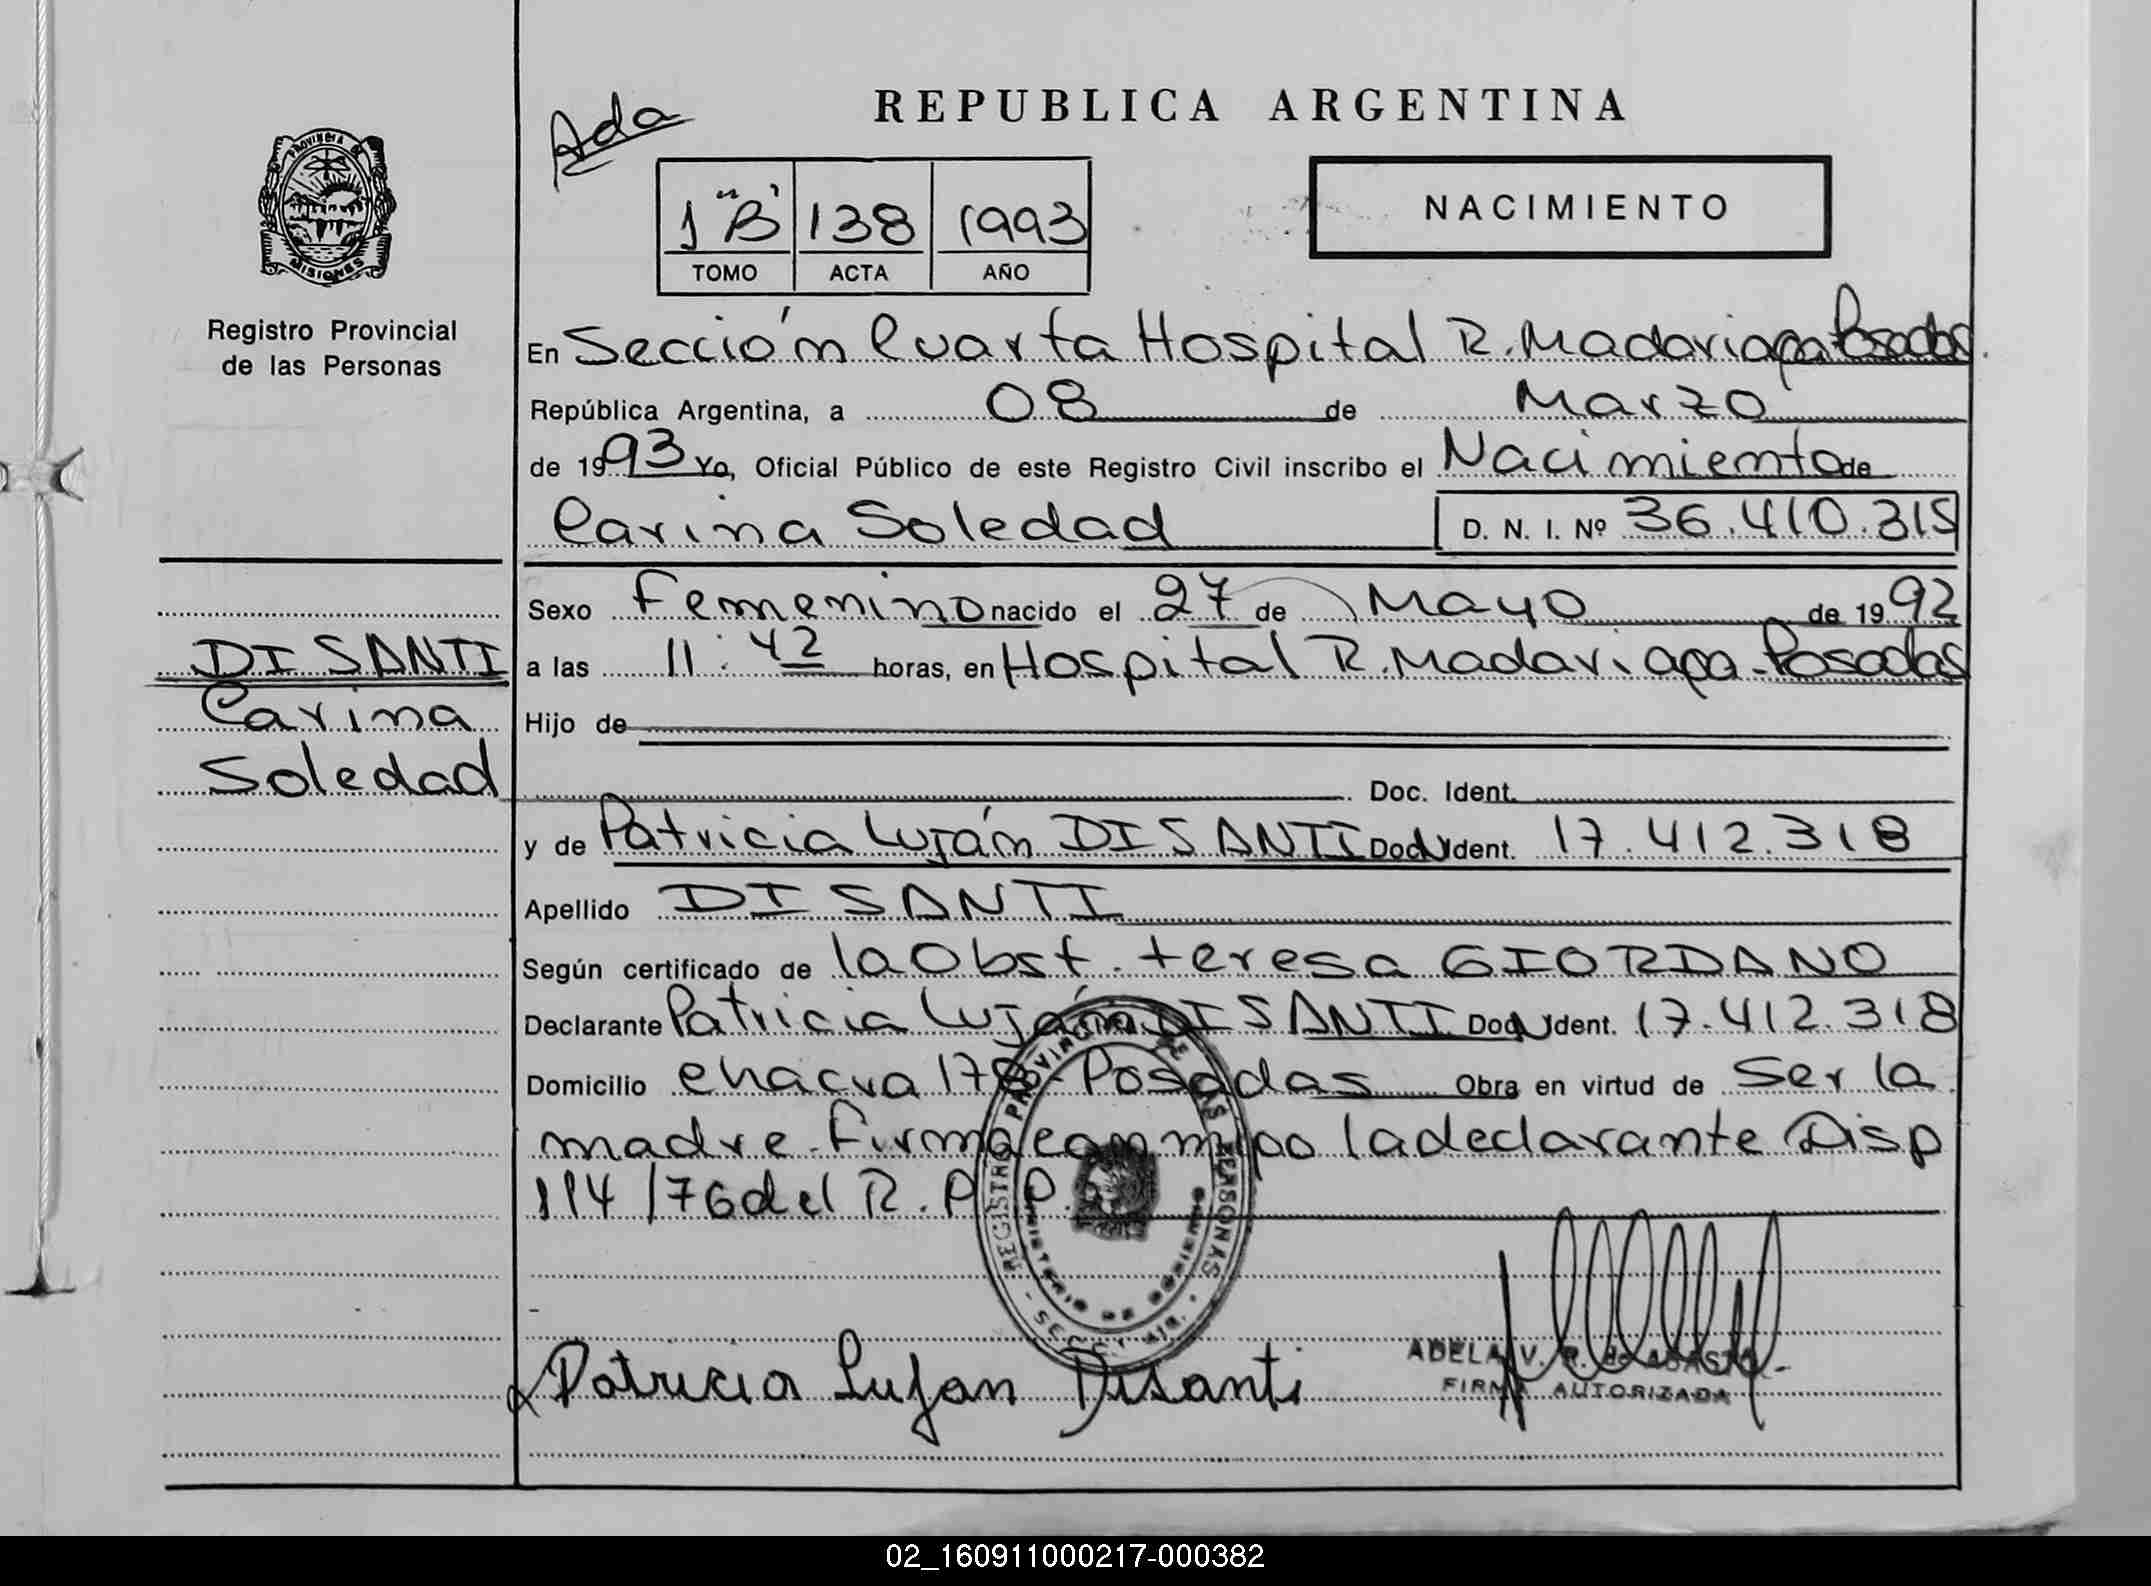 REPUBLICA ARGENTINA
Ada
1 "B" 138 1993
TOMO ACTA AÑO
NACIMIENTO
PROVINCIA DE
MISIONES
Registro Provincial
de las Personas
DI SANTI
Carina
Soledad
En Sección Cuarta Hospital R. Madariaga Posadas.
República Argentina, a 08 de Marzo
de 1993 Yo, Oficial Público de este Registro Civil inscribo el Nacimiento de
Carina Soledad D. N. I. Nº 36.410.315
Sexo Femenino nacido el 27 de Mayo de 1992
a las 11:42 horas, en Hospital R. Madariaga - Posadas
Hijo de
Doc. Ident.
y de Patricia Luján DI SANTI Doc. Ident. 17.412.318
Apellido DI SANTI
Según certificado de la Obst. teresa GIORDANO
Declarante Patricia Luján DI SANTI Doc. Ident. 17.412.318
Domicilio chacra 178 - Posadas Obra en virtud de Ser la
madre. Firma conmigo la declarante Disp
114/76 del R. P. P.
REGISTRO PROVINCIAL DE LAS PERSONAS
MINISTERIO DE GOBIERNO
Patricia Lujan Disanti
ADELA V. R. de
FIRMA AUTORIZADA
02_160911000217-000382